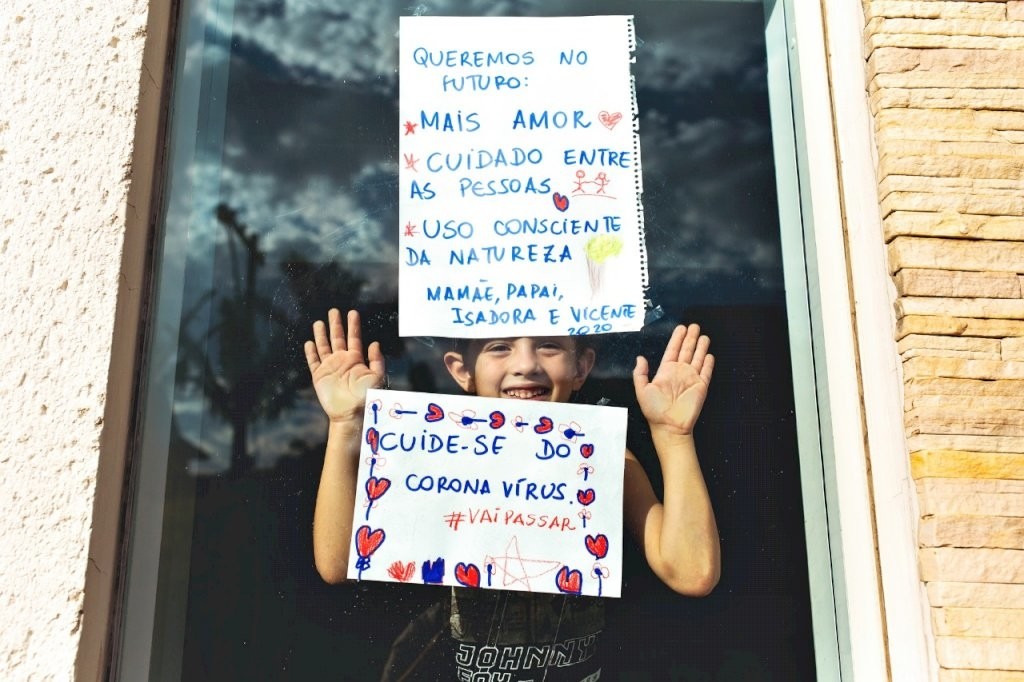 QUEREMOS NO
FUTURO:
* MAIS AMOR
* CUIDADO ENTRE
AS PESSOAS
* USO CONSCIENTE
DA NATUREZA
MAMÃE, PAPAI,
ISADORA E VICENTE
2020
CUIDE-SE DO
CORONA VÍRUS.
#VAIPASSAR
JOHNNY
FOX